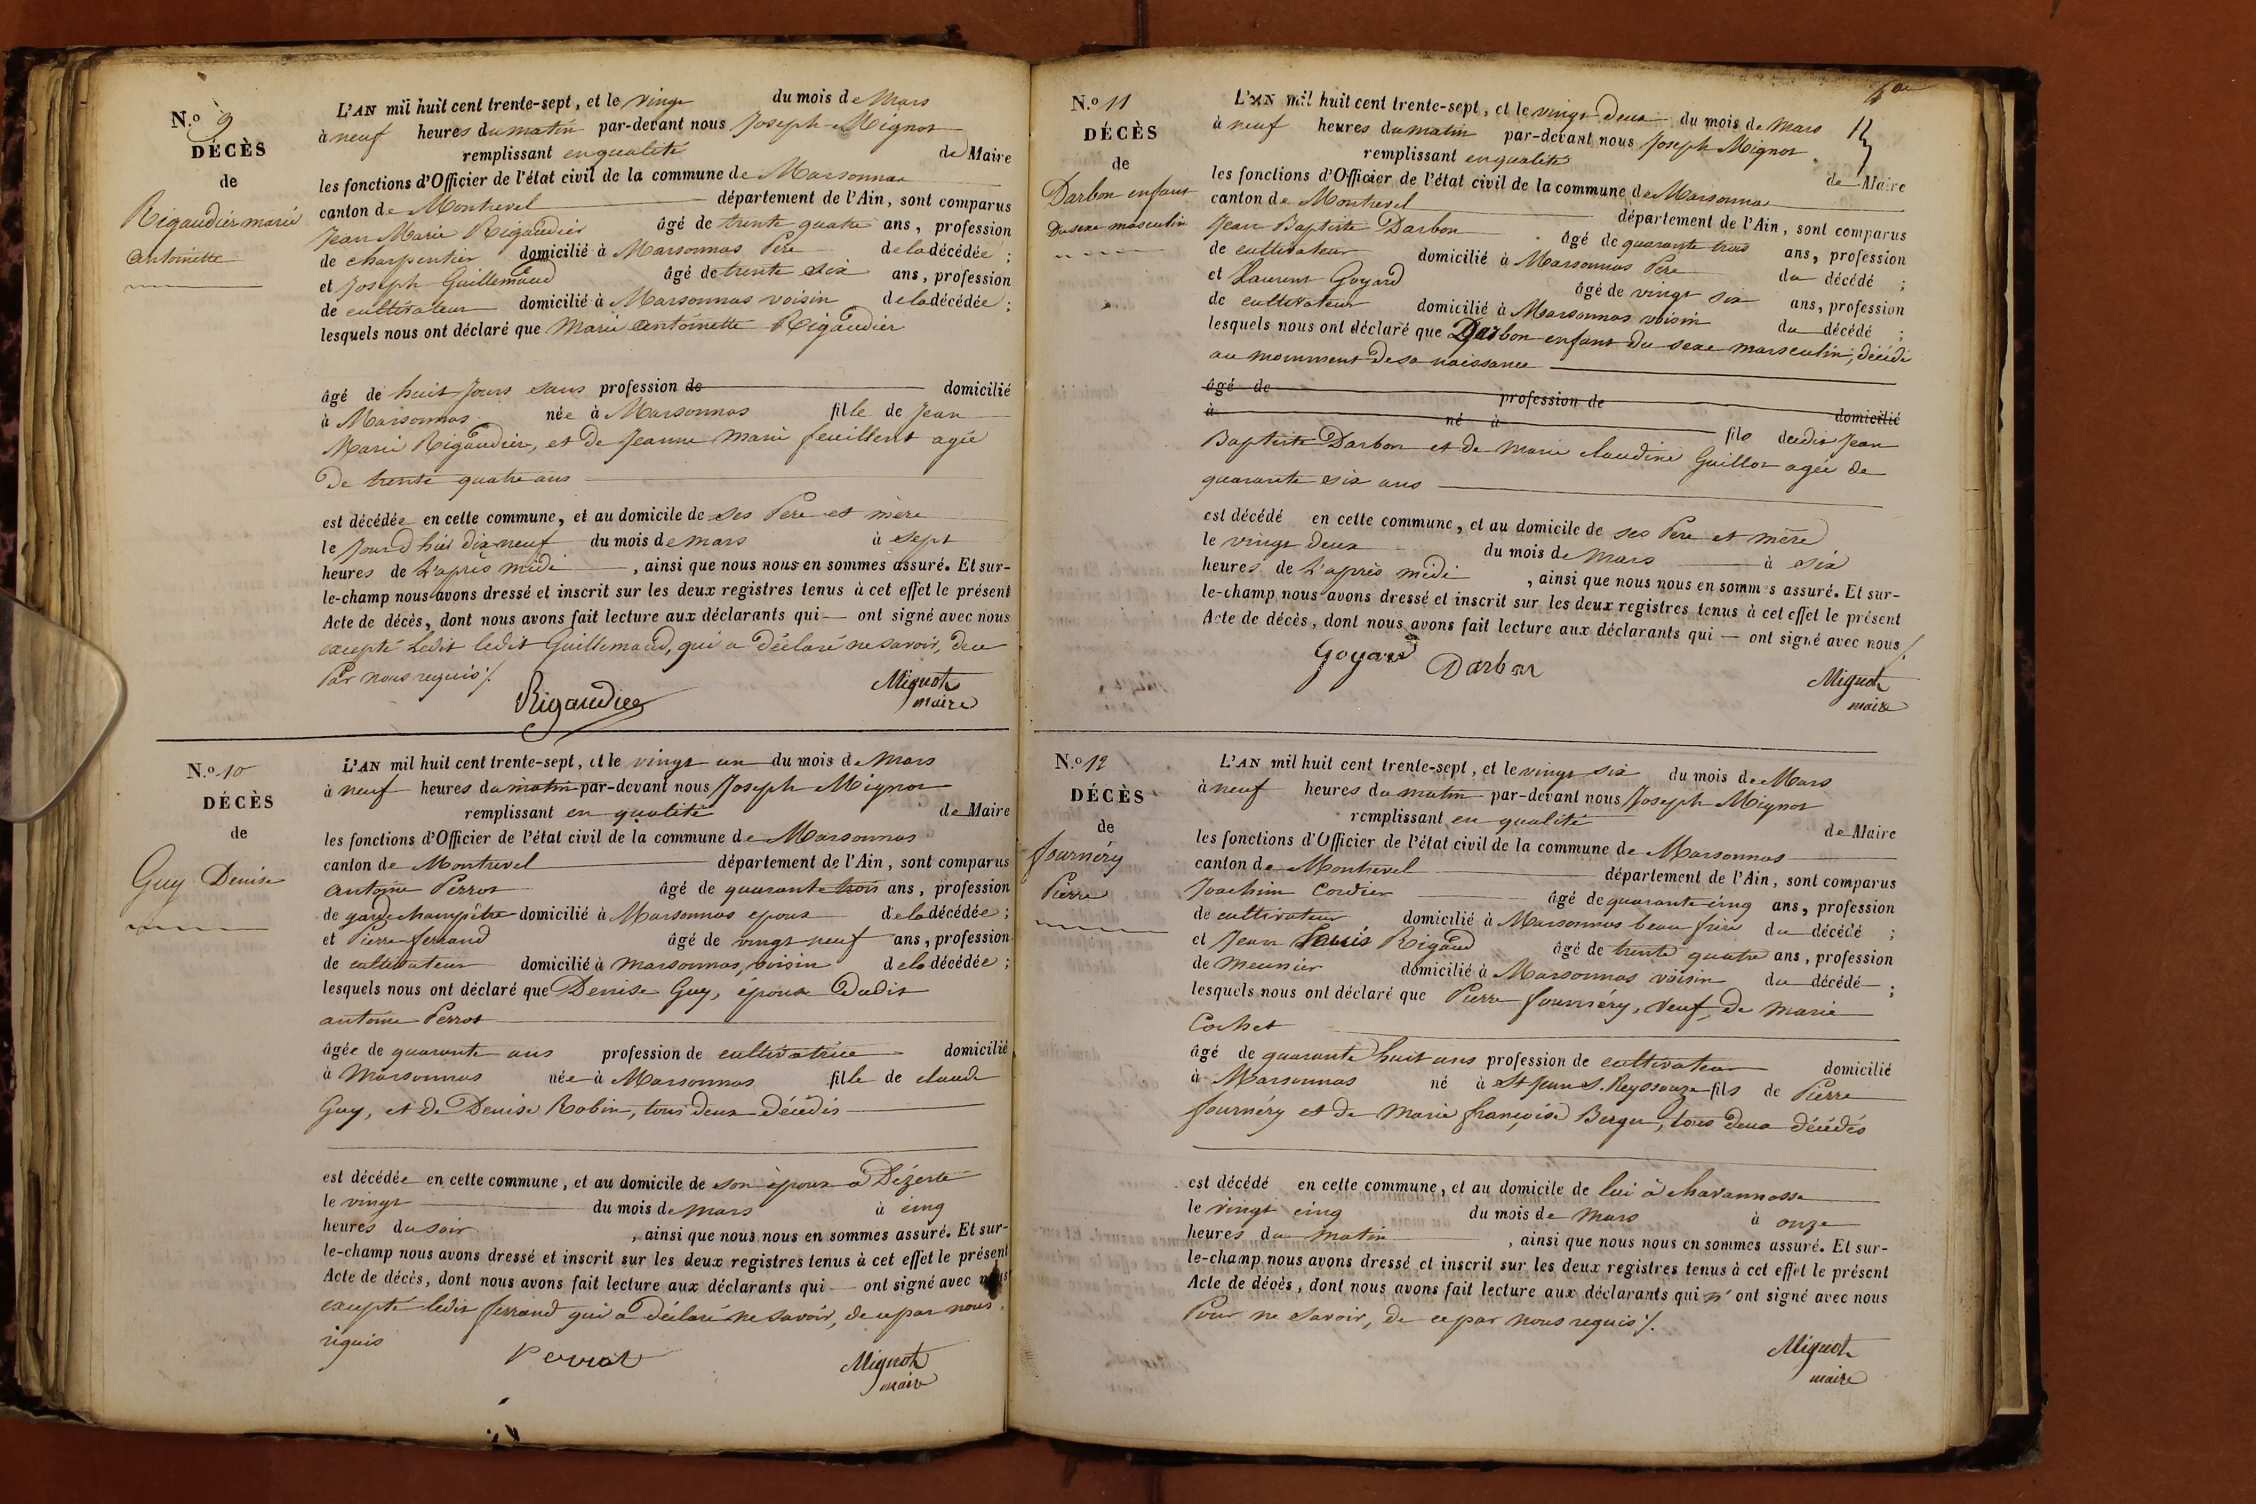 N.º 9
DÉCÈS
de
Rigaudier marie
antoinette
L'AN mil huit cent trente-sept, et le vingt du mois de Mars
à neuf heures du matin par-devant nous Joseph Mignot
remplissant en qualité de Maire
les fonctions d'Officier de l'état civil de la commune de Marsonnas
canton de Montrevel département de l'Ain, sont comparus
Jean Marie Rigaudier âgé de trente quatre ans, profession
de charpentier domicilié à Marsonnas Pere de la décédée ;
et Joseph Guillemaud âgé de trente six ans, profession
de cultivateur domicilié à Marsonnas voisin de la décédée ;
lesquels nous ont déclaré que Marie antoinette Rigaudier
âgé de huit jours sans profession de domicilié
à Marsonnas née à Marsonnas fille de Jean
Marie Rigaudier, et de Jeanne Marie feuillent agée
de trente quatre ans
est décédée en cette commune, et au domicile de ses Pere et mère
le jourd'hui dix neuf du mois de mars à sept
heures de l'après midi, ainsi que nous nous en sommes assuré. Et sur-
le-champ nous avons dressé et inscrit sur les deux registres tenus à cet effet le présent
Acte de décès, dont nous avons fait lecture aux déclarants qui — ont signé avec nous
excepté Ledit ledit Guillemaud, qui a déclaré ne savoir, de ce
Par nous requis ./.
Rigaudier
Mignot
maire
N.º 10
DÉCÈS
de
Guy Denise
L'AN mil huit cent trente-sept, et le vingt un du mois de Mars
à neuf heures du matin par-devant nous Joseph Mignot
remplissant en qualité de Maire
les fonctions d'Officier de l'état civil de la commune de Marsonnas
canton de Montrevel département de l'Ain, sont comparus
antoine Perrot âgé de quarante trois ans, profession
de garde champêtre domicilié à Marsonnas epoux de la décédée ;
et Pierre ferrand âgé de vingt neuf ans, profession
de cultivateur domicilié à marsonnas, voisin de la décédée ;
lesquels nous ont déclaré que Denise Guy, epouse Dudit
antoine Perrot
âgée de quarante ans profession de cultivatrice domicilié
à Marsonnas née à Marsonnas fille de claude
Guy, et de Denise Robin, tous deux décédés
est décédée en cette commune, et au domicile de son époux à Dézerte
le vingt du mois de mars à cinq
heures du soir, ainsi que nous nous en sommes assuré. Et sur-
le-champ nous avons dressé et inscrit sur les deux registres tenus à cet effet le présent
Acte de décès, dont nous avons fait lecture aux déclarants qui — ont signé avec nous
excepté ledit ferrand qui a déclaré ne savoir, de ce par nous
requis
Perrot
Mignot
maire
N.º 11
DÉCÈS
de
Darbon enfant
Du sexe masculin
L'AN mil huit cent trente-sept, et le vingt deux du mois de Mars
à neuf heures du matin par-devant nous Joseph Mignot
remplissant en qualité de Maire
les fonctions d'Officier de l'état civil de la commune de Marsonnas
canton de Montrevel département de l'Ain, sont comparus
Jean Baptiste Darbon âgé de quarante trois ans, profession
de cultivateur domicilié à Marsonnas Pere du décédé ;
et Laurent Goyard âgé de vingt six ans, profession
de cultivateur domicilié à Marsonnas voisin du décédé ;
lesquels nous ont déclaré que Darbon enfant du sexe marsculin, décédé
au momment de sa naissance
âgé de profession de domicilié
à né à fils dudit Jean
Baptiste Darbon et de Marie claudine Guillot agée de
quarante six ans
est décédé en cette commune, et au domicile de ses Pere et mère
le vingt deux du mois de Mars à six
heures de l'après midi, ainsi que nous nous en sommes assuré. Et sur-
le-champ nous avons dressé et inscrit sur les deux registres tenus à cet effet le présent
Acte de décès, dont nous avons fait lecture aux déclarants qui — ont signé avec nous ./.
Goyard Darbon
Mignot
maire
N.º 12
DÉCÈS
de
fournéry
Pierre
L'AN mil huit cent trente-sept, et le vingt six du mois de Mars
à neuf heures du matin par-devant nous Joseph Mignot
remplissant en qualité de Maire
les fonctions d'Officier de l'état civil de la commune de Marsonnas
canton de Montrevel département de l'Ain, sont comparus
Joachim Cordier âgé de quarante cinq ans, profession
de cultivateur domicilié à Marsonnas beau frère du décédé ;
et Jean Louis Rigaud âgé de trente quatre ans, profession
de meunier domicilié à Marsonnas voisin du décédé ;
lesquels nous ont déclaré que Pierre fournéry, veuf, de Marie
Cochet
âgé de quarante huit ans profession de cultivateur domicilié
à Marsonnas né à St Jean S. Reyssouze fils de Pierre
fournéry et de Marie françoise Berger, tous deux décédés
est décédé en cette commune, et au domicile de lui à chavannosse
le vingt cinq du mois de Mars à onze
heures du matin, ainsi que nous nous en sommes assuré. Et sur-
le-champ nous avons dressé et inscrit sur les deux registres tenus à cet effet le présent
Acte de décès, dont nous avons fait lecture aux déclarants qui n'ont signé avec nous
Pour ne savoir, de ce par nous requis ./.
Mignot
maire